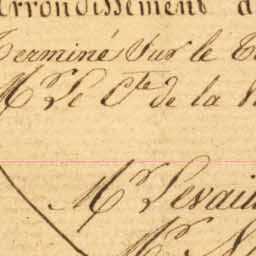 Arrondissement d
Terminé Sur le Te
Mr Le Cte de la
Mr Levaill
Mr